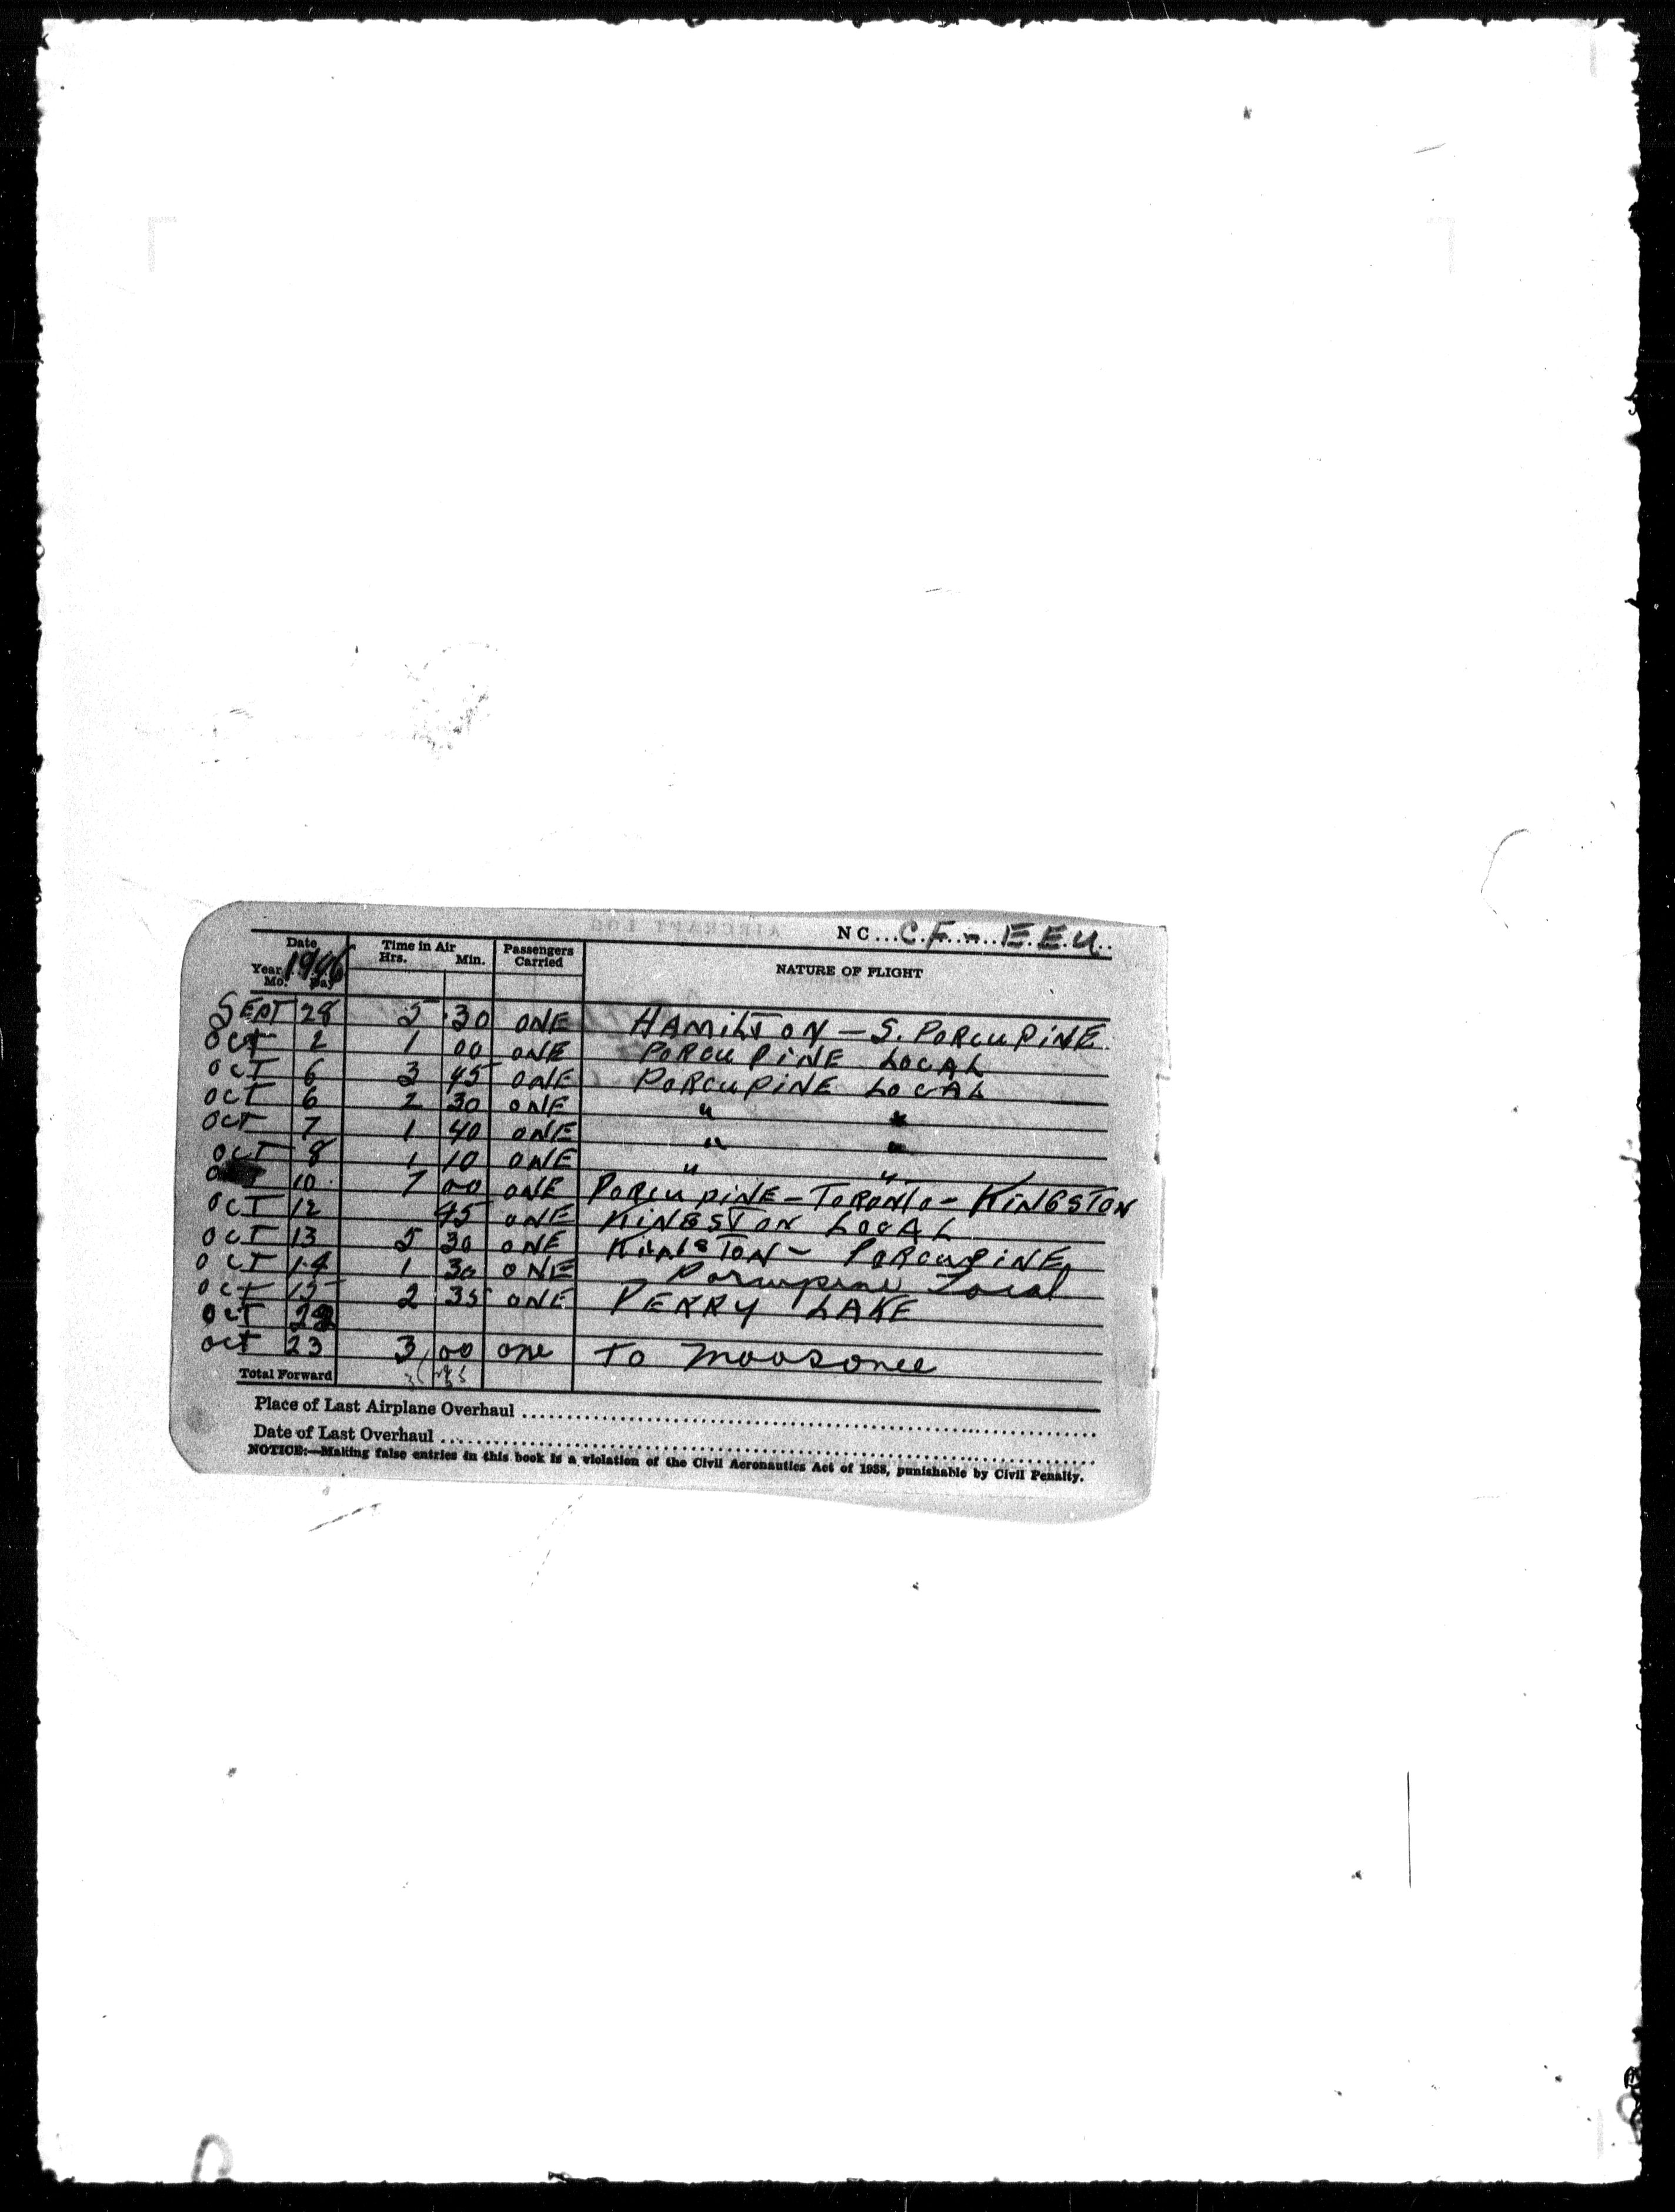 NC...C.F.-..E.E.U..
Date Time in Air Passengers Carried NATURE OF FLIGHT
Year 1946 Hrs. Min.
Mo. Day
SEPT 28 5 30 ONE HAMILTON — S. PORCUPINE
OCT 2 1 00 ONE PORCUPINE LOCAL
OCT 6 3 45 ONE PORCUPINE LOCAL
OCT 6 2 30 ONE " "
OCT 7 1 40 ONE " "
OCT 8 1 10 ONE " "
10 7 00 ONE PORCUPINE - TORONTO - KINGSTON
OCT 12 45 ONE KINGSTON LOCAL
OCT 13 5 30 ONE KINGSTON - PORCUPINE
OCT 14 1 30 ONE Porcupine Local
OCT 15 2 35 ONE PERRY LAKE
OCT
OCT 23 3 00 one To Moosonee
Total Forward
Place of Last Airplane Overhaul
Date of Last Overhaul
NOTICE:—Making false entries in this book is a violation of the Civil Aeronautics Act of 1938, punishable by Civil Penalty.